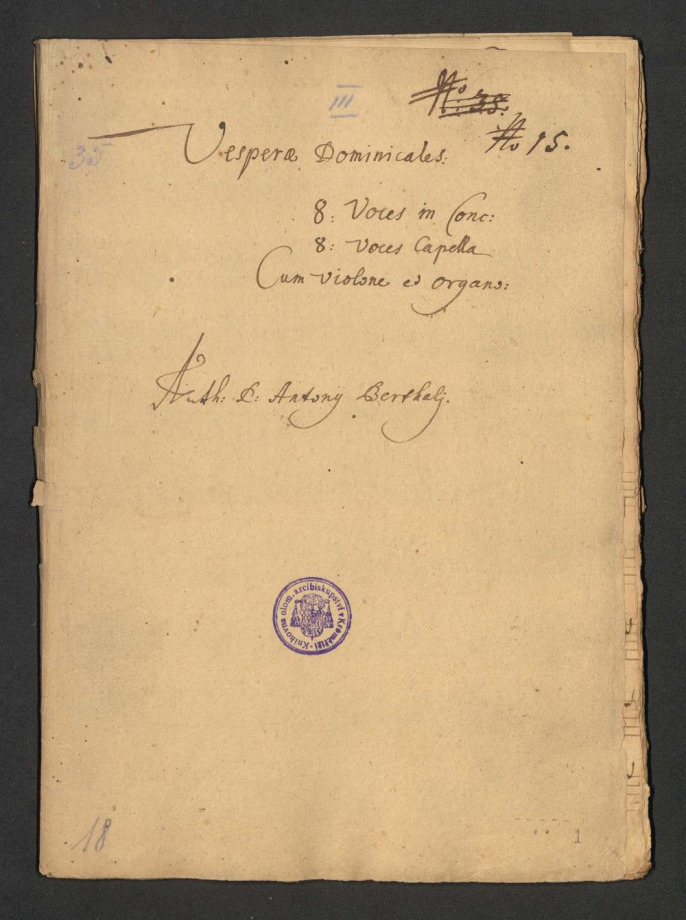 III
No. 35.
35
No 15.
Vesperæ Dominicales:
8: Voces in Conc:
8: Voces Capella
Cum Violone et Organo:
Auth: D: Antonij Berthalj.
Knihovna olom. arcibiskupství v Kroměříži
18
1